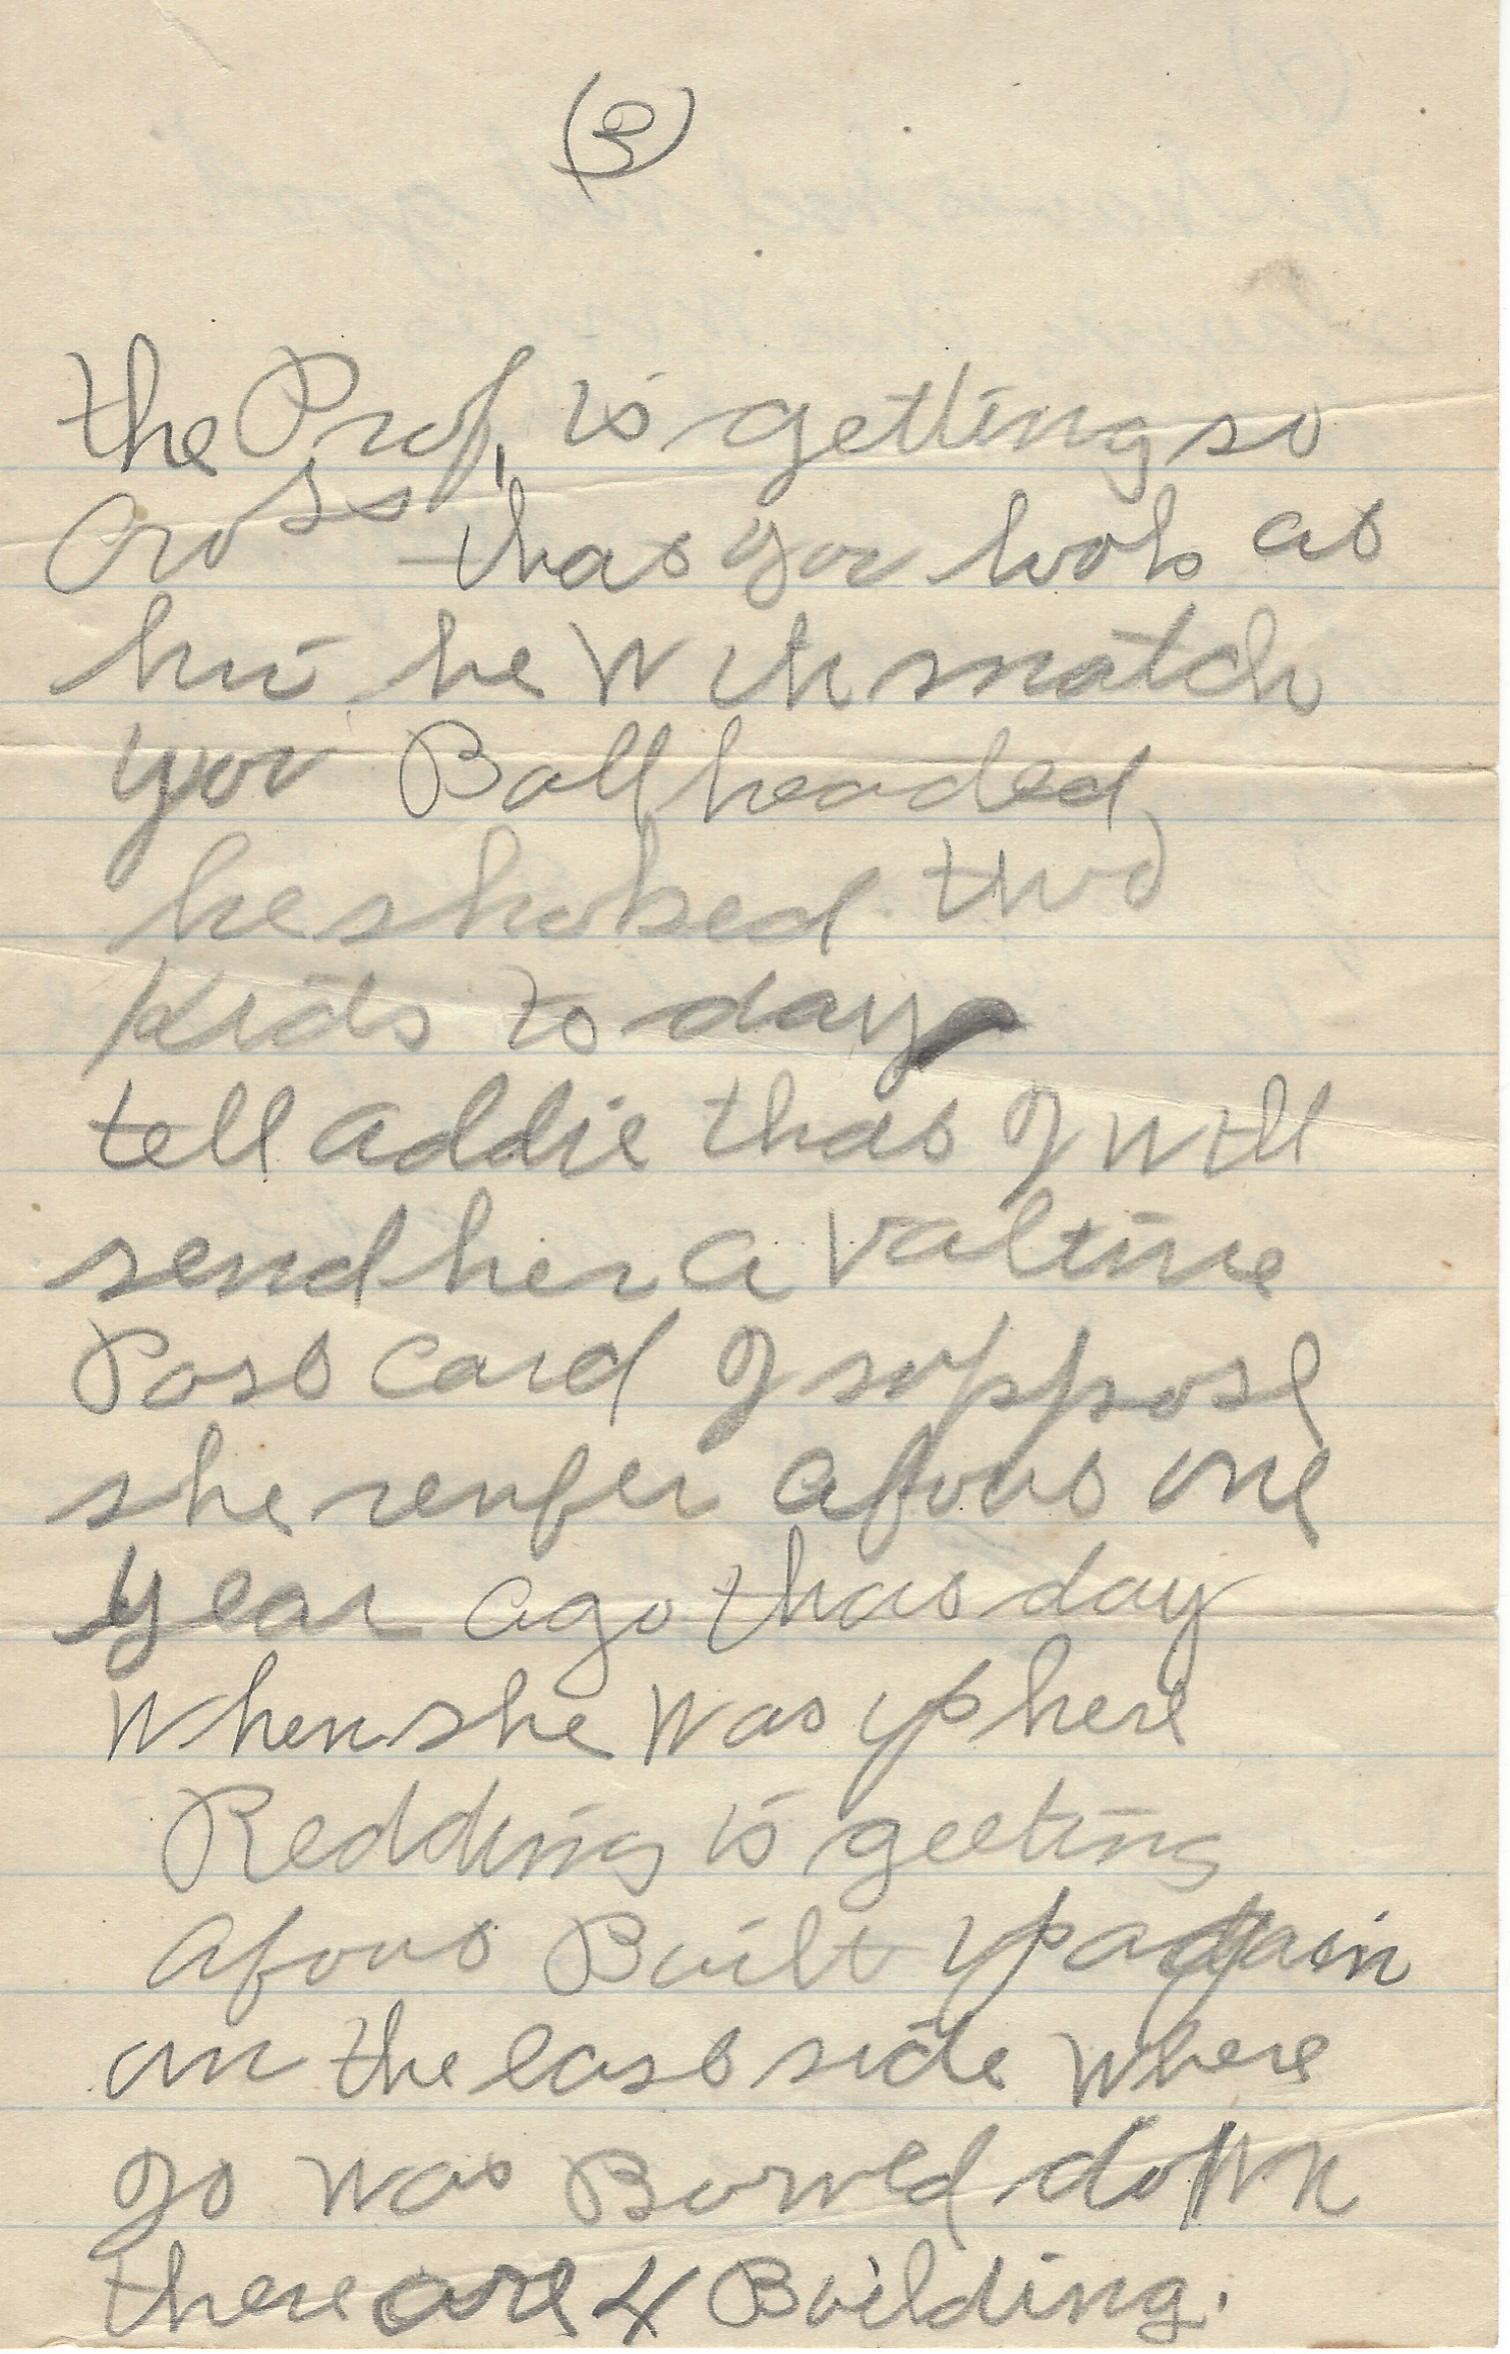 (3)
the Prof, is getting so
Cross that you look at
him he will match
you Ball headed,
he shoked two
Kids to day
tell addie that I will
send her a Valtine
Post card I suppose
she renber about one
year ago that day
When she was up here
Redding is geeting
about Built up again
on the east side Where
It was Burned down
there are 4 Building.